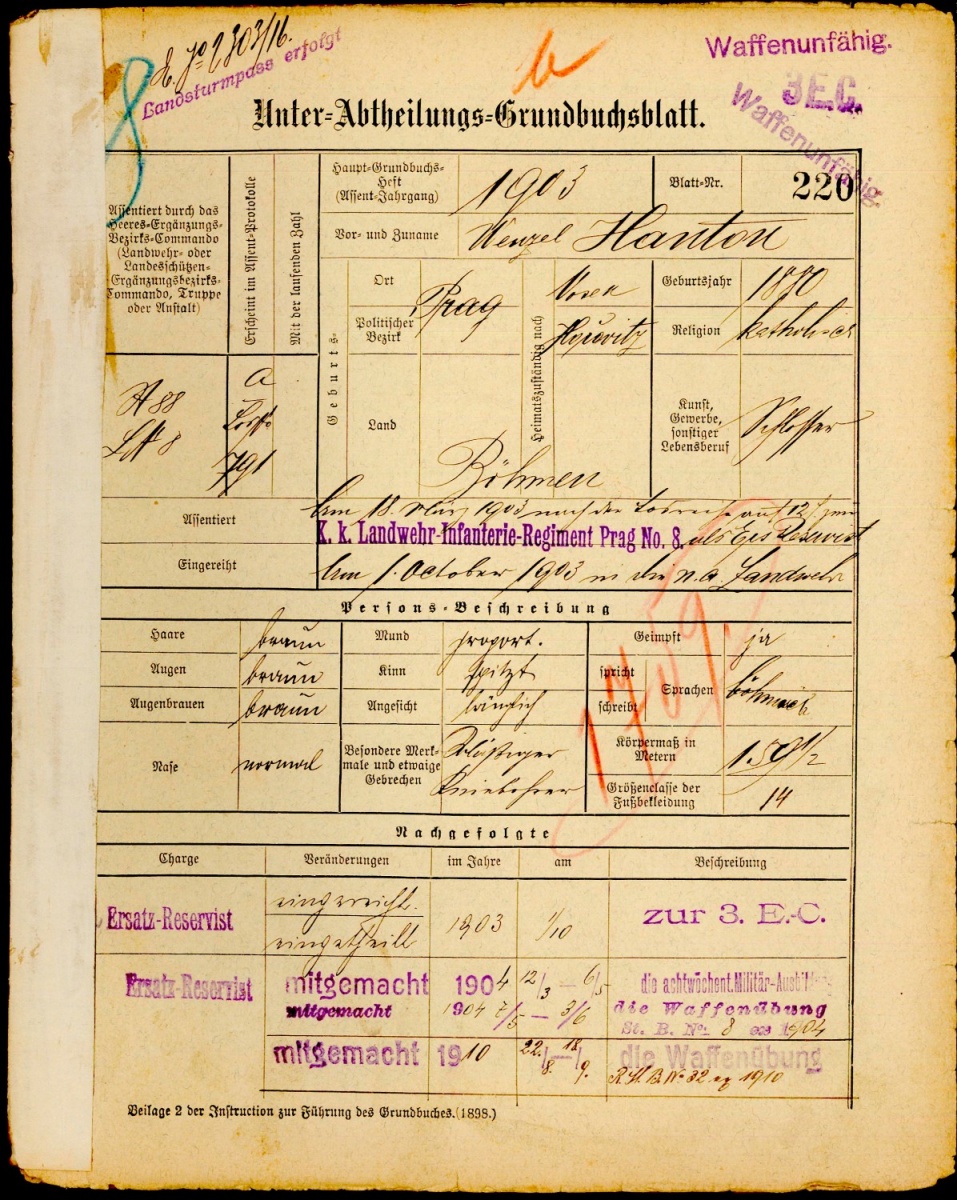 Landsturmpass erfolgt
b
Waffenunfähig.
3 E.C.
Waffenunfähig.
8
Unter-Abtheilungs-Grundbuchsblatt.
Assentiert durch das
Heeres-Ergänzungs-
Bezirks-Commando
(Landwehr- oder
Landesschützen-
Ergänzungsbezirks-
Commando, Truppe
oder Anstalt)
Erscheint im Assent-Protokolle
Mit der laufenden Zahl
Haupt-Grundbuchs-
Heft
(Assent-Jahrgang)
1903
Blatt-Nr.
220
Vor- und Zuname
Wenzel Hanton
Geburts-
Ort
Politischer
Bezirk
Prag
Heimatszuständig nach
Geburtsjahr
Religion
Land
Böhmen
Kunst,
Gewerbe,
sonstiger
Lebensberuf
Schlosser
A
791
Assentiert
Am 18. März 1903 nach der Losreihe auf 12
K. k. Landwehr-Infanterie-Regiment Prag No. 8.
als Ers Reservist
Eingereiht
Am 1. October 1903 in die n.a. Landwehr
Persons-Beschreibung
Haare
braun
Mund
proport.
Geimpft
ja
Augen
braun
Kinn
spitzt
spricht
schreibt
Sprachen
böhmisch
Augenbrauen
braun
Angesicht
länglich
Nase
normal
Besondere Merk-
male und etwaige
Gebrechen
Körpermaß in
Metern
1.59 1/2
Größenclasse der
Fußbekleidung
14
Nachgefolgte
Charge
Veränderungen
im Jahre
am
Beschreibung
Ersatz-Reservist
eingereiht.
eingetheilt
1903
1/10
zur 3. E.-C.
Ersatz-Reservist
mitgemacht 1904 12/3 — 6/5 die achtwöchent. Militär-Ausbil
mitgemacht 1904 7/5 — 3/6 die Waffenübung
St. B. No. 8 ex 1904
mitgemacht 1910 22./8. — 18./9. die Waffenübung
R. St. B. No 32 ex 1910
Beilage 2 der Instruction zur Führung des Grundbuches. (1898.)